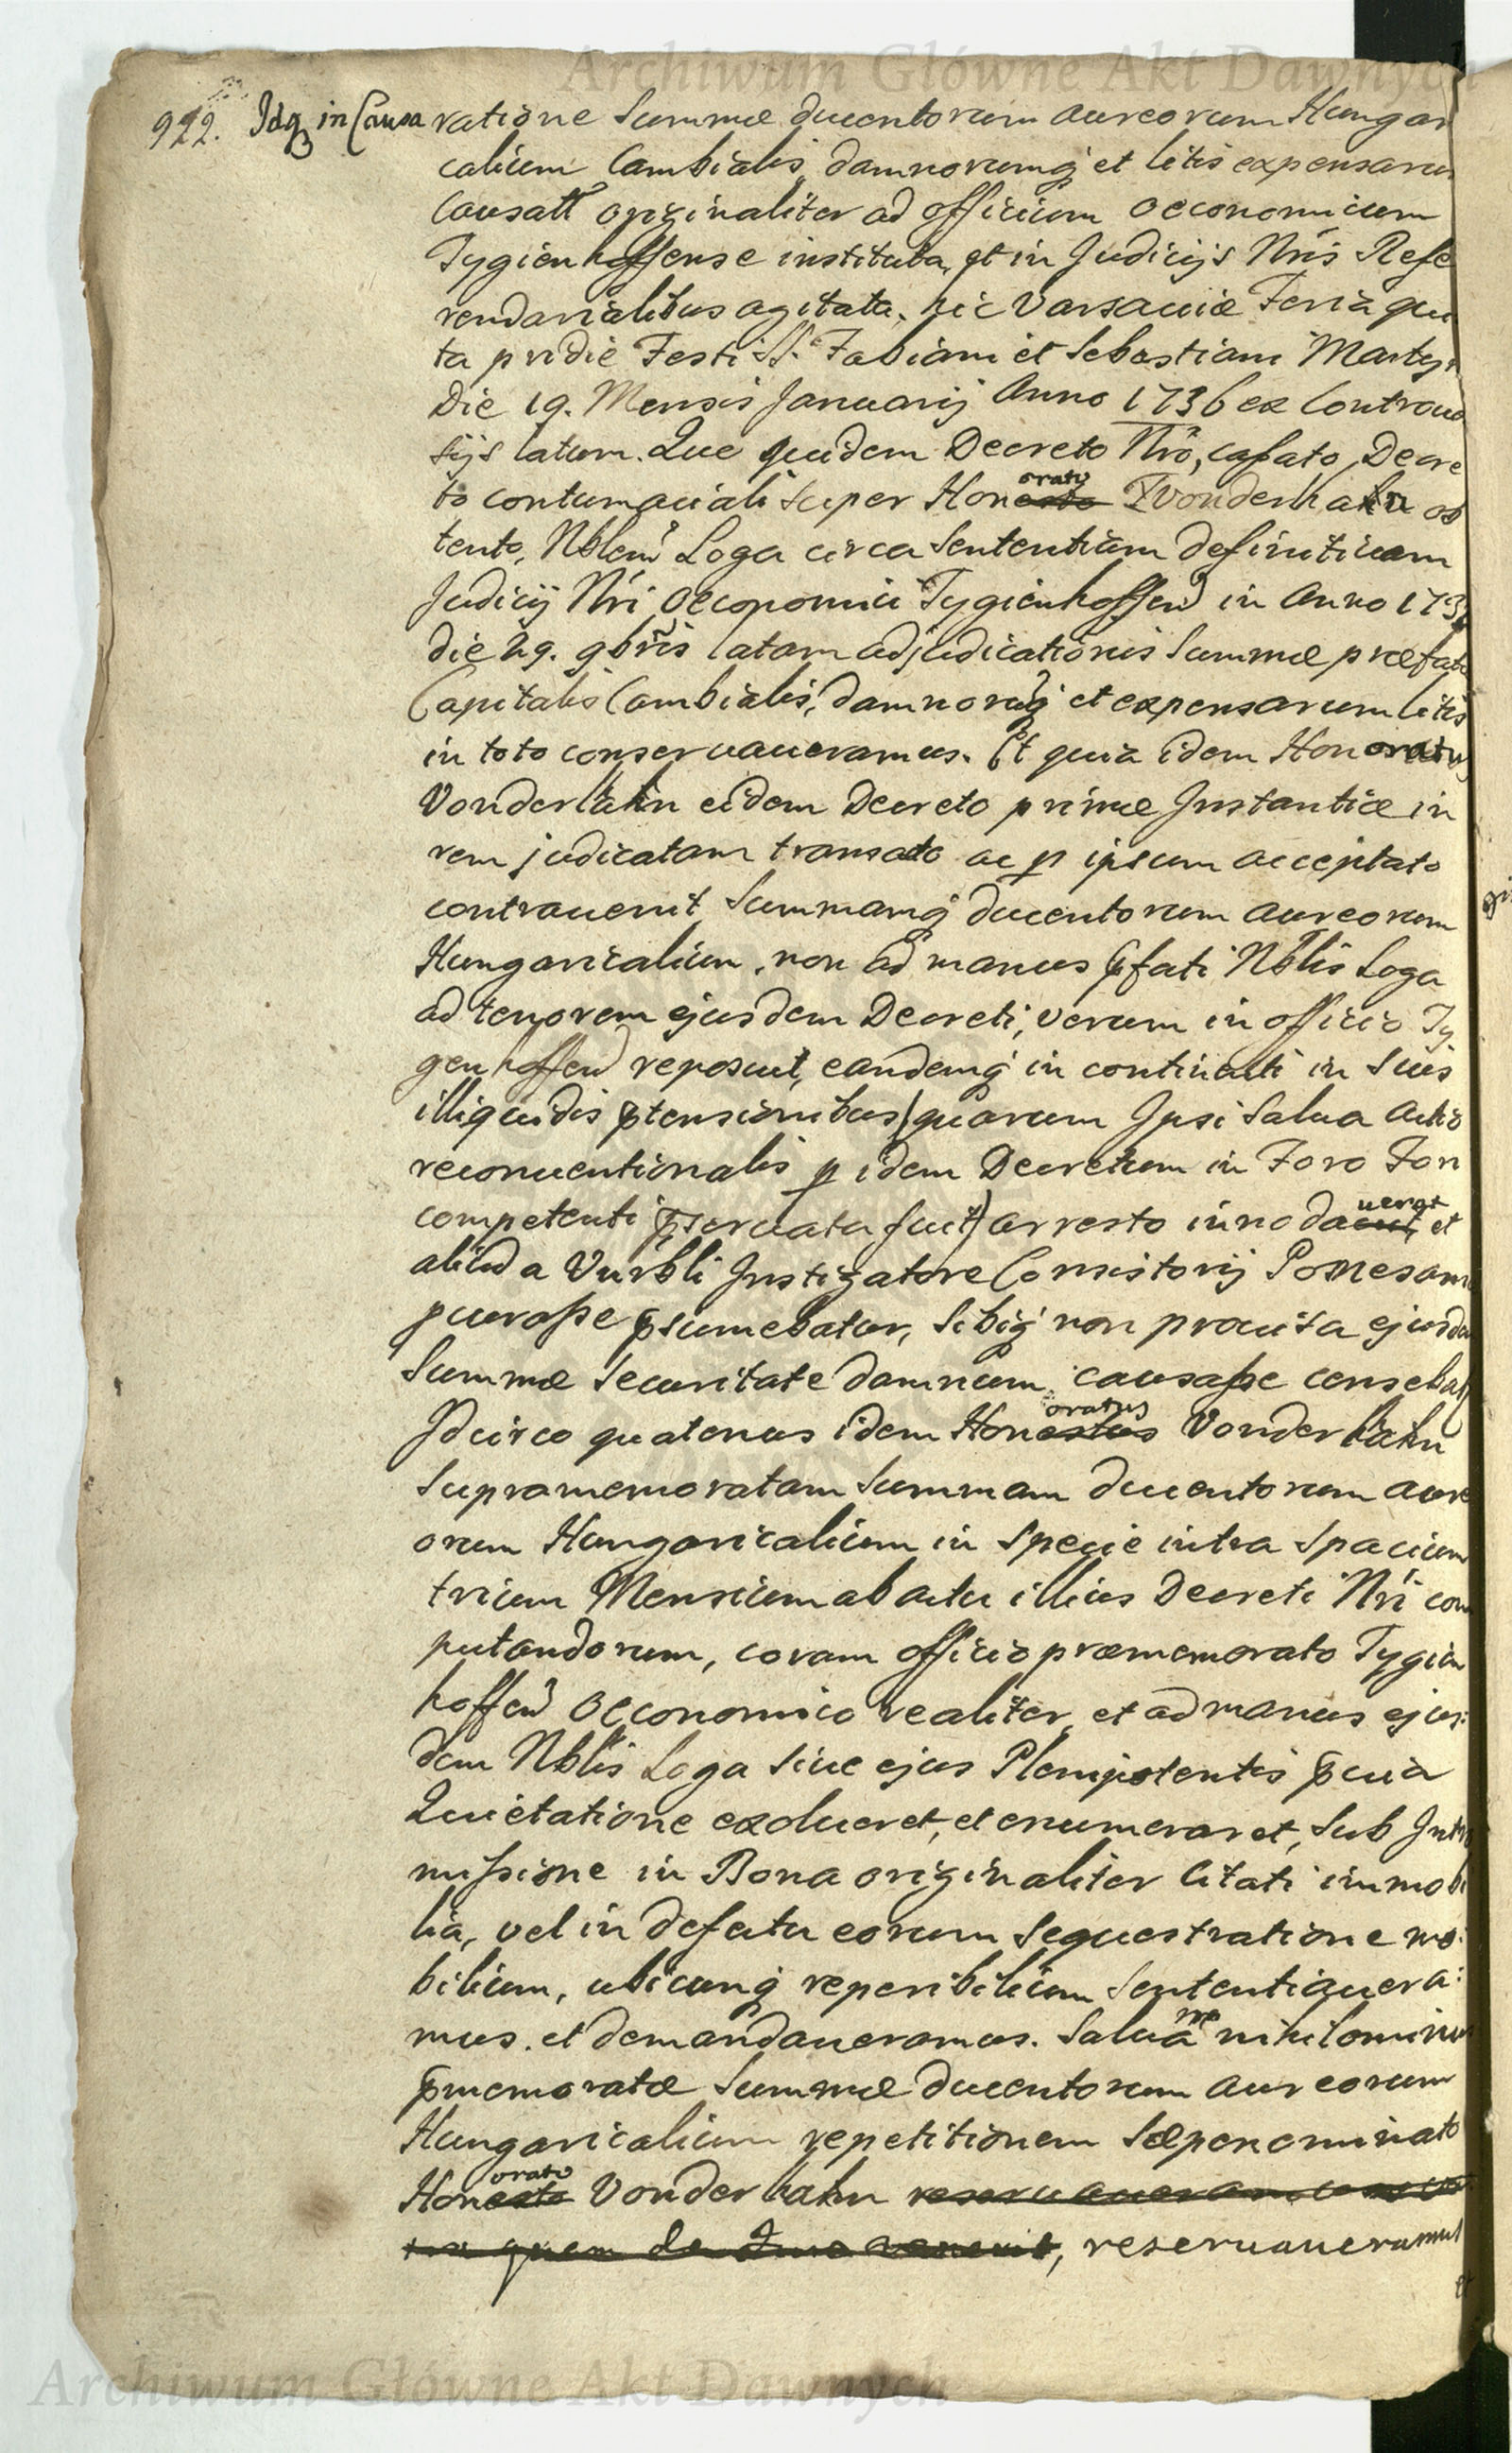 Archiwum Główne Akt Dawnych
922. Idq in Causa ratione Summæ ducentorum aureorum Hungari
calium Cambialis, damnorumq et litis expensarum
Causatt originaliter ad officium oeconomicum
Tygienhoffense instituta, et in Judicijs Nris Refe
rendarialibus agitata, hic Varsaviæ Feria qui
ta pridie Festi SS. Fabiani et Sebastiani Martyr
Die 19. Mensis Januarij Anno 1736 ex Controuer
sijs latum. Quo quidem Decreto Nro, cassato Decre
to contumaciali super Honesto orato Vonderhahn ob
tento, Nblem Loga circa Sententiam definitiuam
Judicij Nri Oeconomici Tygienhoffen in Anno 173
die 29. 9bris latam adjudicationis Summæ præfatæ
Capitalis Cambialis, damnorūq et expensarum litis
in toto conseruaueramus. Et quia idem Honoratus
Vonderhahn eidem Decreto primæ Instantiæ in
rem judicatam transato ac p ipsum acceptato
contrauenit Summamq ducentorum aureorum
Hungaricalium, non ad manus pfati Nblis Loga
ad tenorem ejusdem Decreti, verum in officio Ty
genhoffen reposuit, eandemq in continenti in suis
illiquidis ptensionibus (quarum Ipsi Salua Actio
reconuentionalis p idem Decretum in Foro Fori
competenti pseruata fuit) arresto innodauit uerat et
aliud a Vnrbli Instigatore Consistorij Pomesani
procurasse psumebatur, Sibiq non prouisa ejusdem
Summæ Securitate damnum causasse censebat
Idcirco quatenus idem Honestus oratus Vonderhahn
Supramemoratam Summam ducentorum aure
orum Hungaricalium in specie intra Spacium
trium Mensium ab actu illius Decreti Nri com
putandorum, coram officio præmemorato Tygien
hoffen Oeconomico realiter, et ad manus ejus:
dem Nblis Loga Siue ejus Plenipotentis pcuia
Quietatione exolueret, et enumeraret, Sub Intro
missione in Bona originaliter Citati immobi
lia, vel in defectu eorum Sequestratione mo:
bilium, ubicunq reperibilium Sententiauera:
mus, et demandaueramus. Saluam nihilominus
pmemoratæ Summæ ducentorum aureorum
Hungaricalium repetitionem Sæpenominato
Honesto orato Vonderhahn reseruaueramus
in quem de Jure venerit, reseruaueramus
et
Archiwum Główne Akt Dawnych